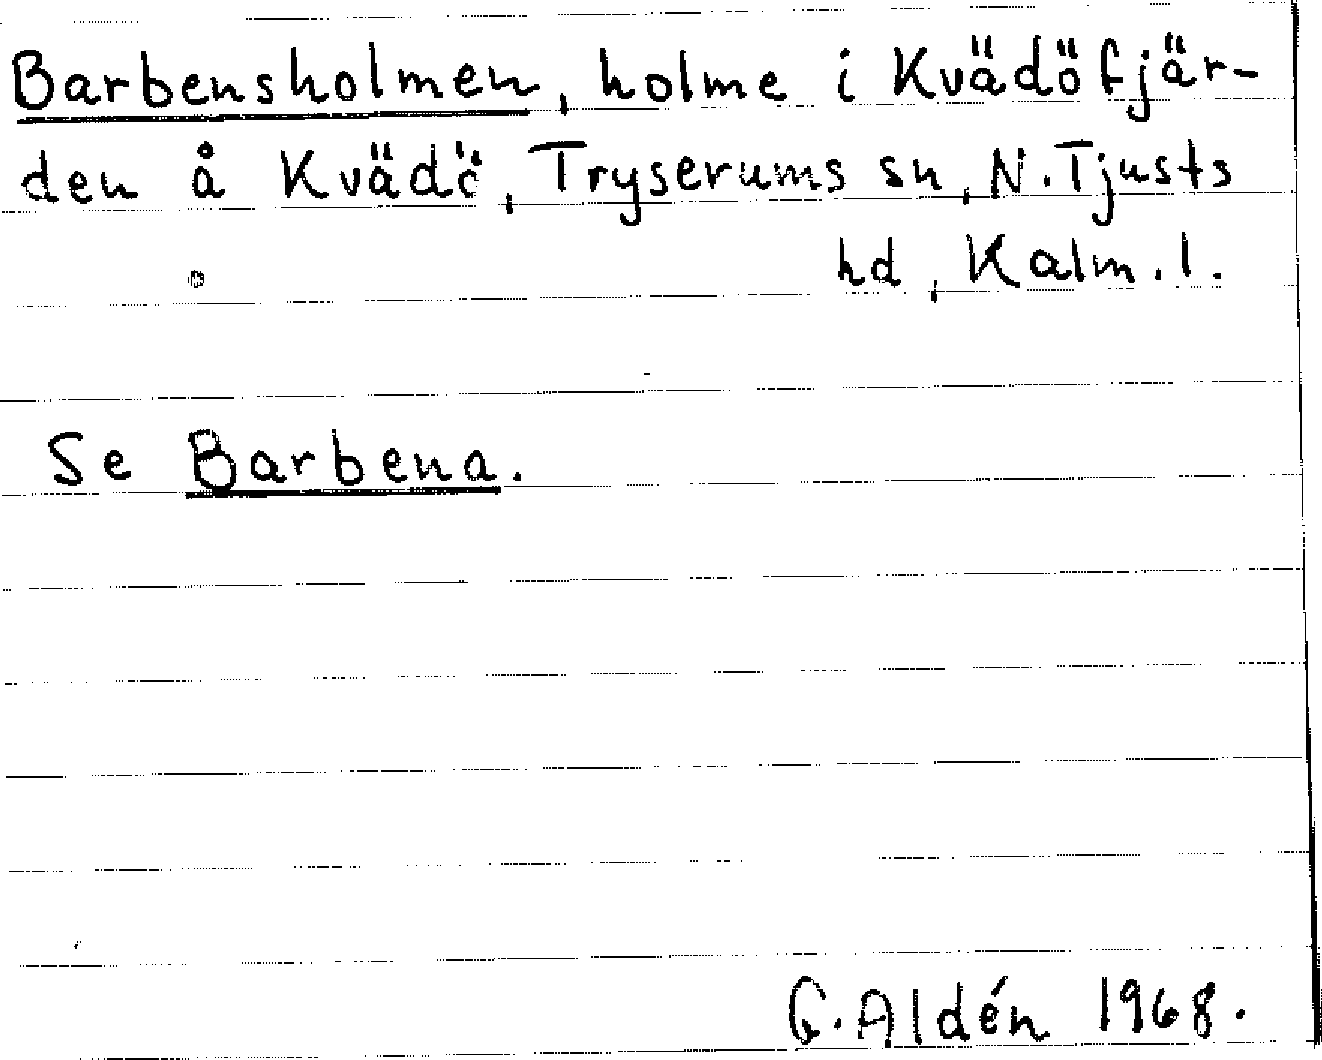 Barbensholmen, holme i Kvädöfjär-
den å Kvädö, Tryserums sn, N. Tjusts
hd, Kalm. l.
Se Barbena.
G. Aldén 1968.